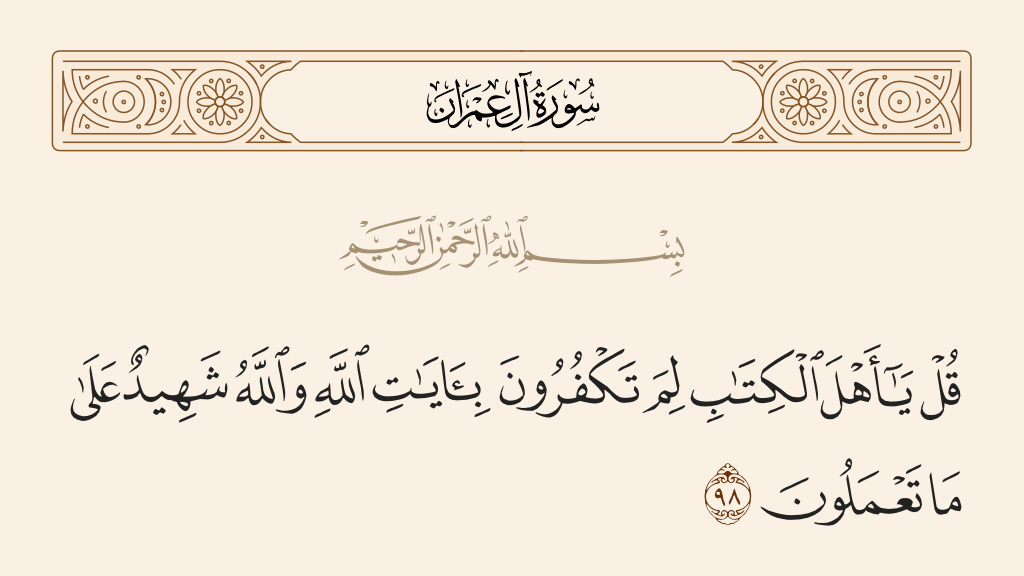 سُورَةُ آلِ عِمْرَانَ
بِسْمِ ٱللَّهِ ٱلرَّحْمَٰنِ ٱلرَّحِيمِ
قُلْ يَـٰٓأَهْلَ ٱلْكِتَـٰبِ لِمَ تَكْفُرُونَ بِـَٔايَـٰتِ ٱللَّهِ وَٱللَّهُ شَهِيدٌ عَلَىٰ
مَا تَعْمَلُونَ ٩٨